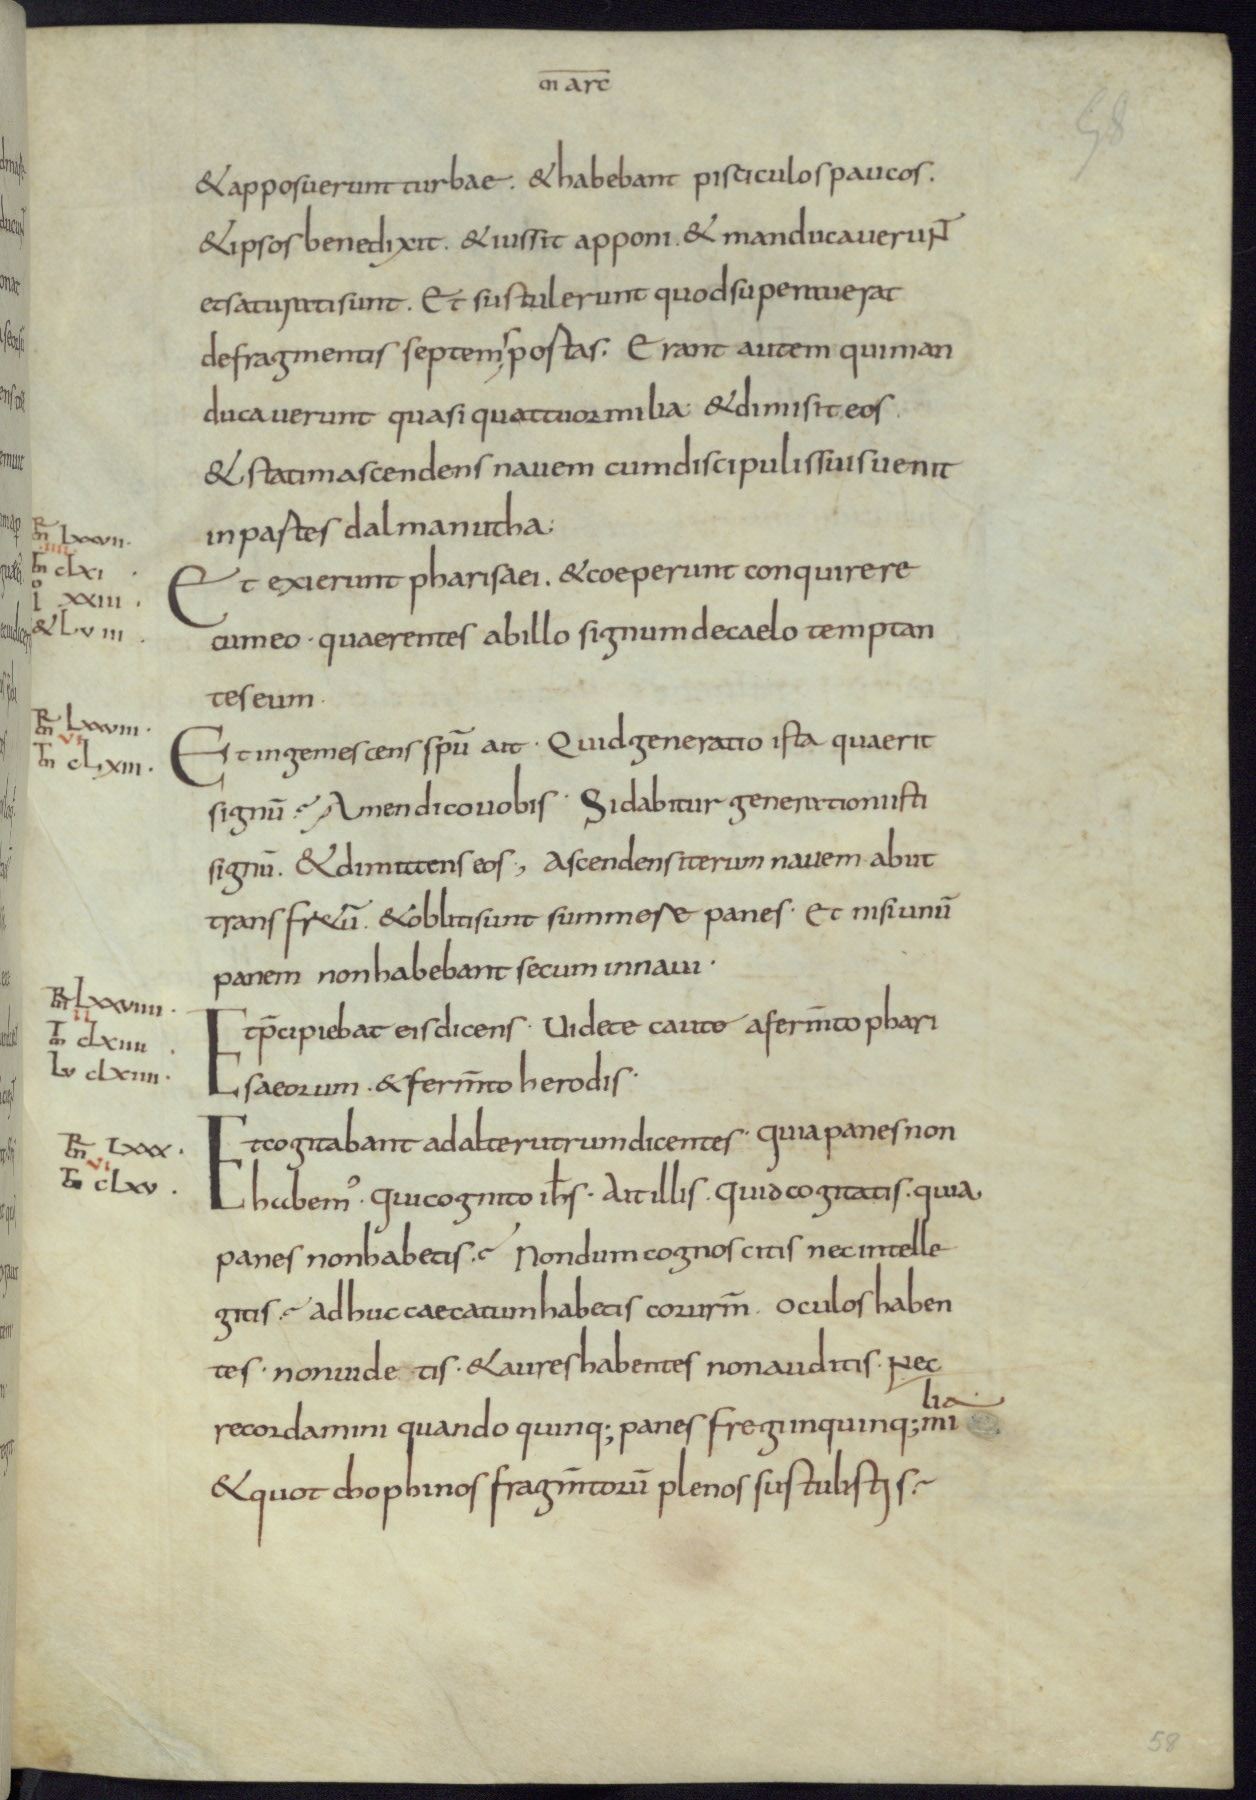 m̅arc̅
58
& apposuerunt turbae. & habebant pisciculos paucos.
& ipsos benedixit. & iussit apponi. & manducaverunt
et saturati sunt. Et sustulerunt quod superauerat
de fragmentis septem spostas. Erant autem qui man
ducauerunt quasi quattuor milia. & dimisit eos.
& statim ascendens nauem cum discipulis suis uenit
in partes dalmanutha;
R̅m̅ Lxxvii.
iiii
m̅ cLxi .
Et exierunt pharisaei. & coeperunt conquirere
Io xxiii .
& Lviii .
cum eo · quaerentes ab illo signum de caelo temptan
tes eum.
R̅m̅ Lxxviii.
vi
m̅ cLxiii.
Et ingemescens sp̅u ait · Quid generatio ista quaerit
signu̅? Amen dico uobis · Si dabitur generationi isti
signu̅. & dimittens eos, ascendens iterum nauem abiit
trans fr&u̅. & obliti sunt summere panes · Et nisi unu̅
panem non habebant secum in naui ·
R̅m̅ Lxxviiii.
ii
m̅ cLxiiii .
Lu cLxiiii.
Et p̅cipiebat eis dicens · Uidete caute a ferm̅to phari
saeorum · & ferm̅to herodis ·
R̅m̅ Lxxx.
vi
m̅ cLxv .
Et cogitabant ad alterutrum dicentes · quia panes non
habem᾿ · quo cognito ih̅s · Ait illis · Quid cogitatis · quia
panes non habetis? Nondum cognoscitis nec intelle
gitis? adhuc caecatum habetis cor ur̅m. oculos haben
tes · non uide tis · & aures habentes non auditis · Nec
recordamini quando quinq; panes fregi in quinq; mi
lia
& quot chophinos fragm̅toru̅ plenos sustulistis?
58